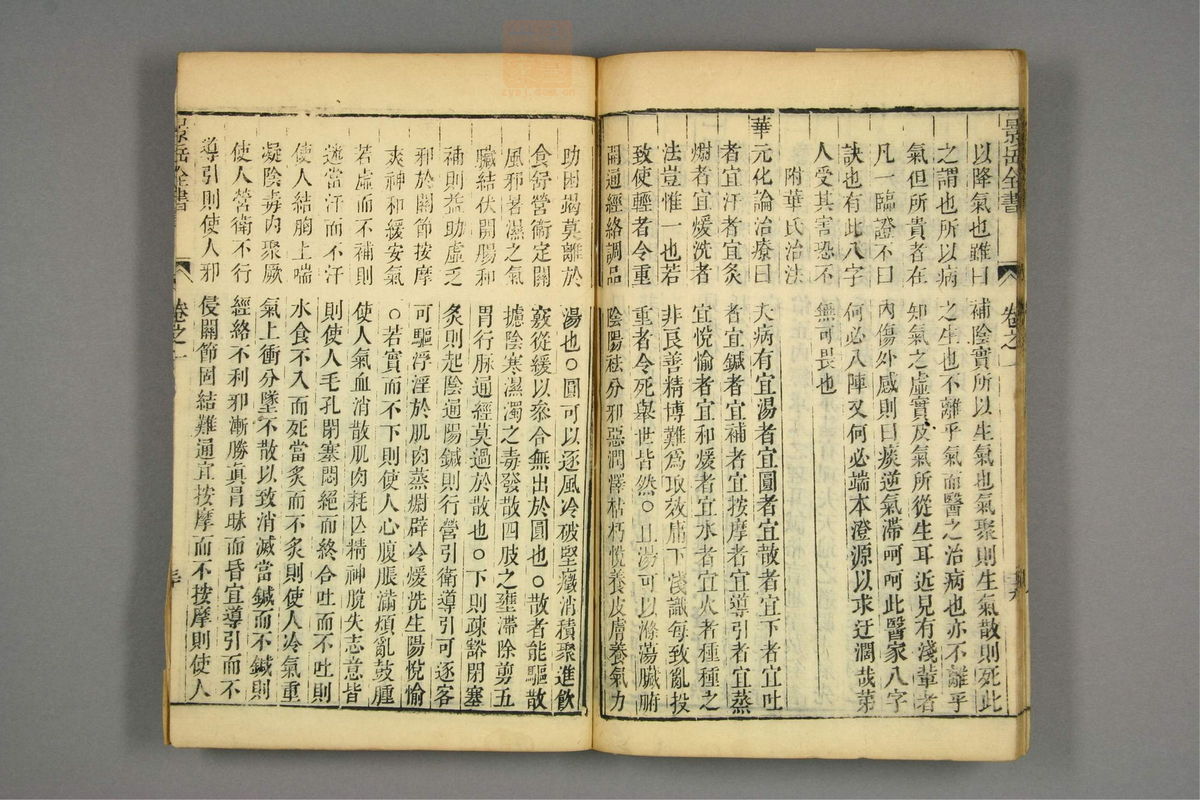 景岳全書
卷之一
以降氣也雖曰補陰實所以生氣也氣聚則生氣散則死此
之謂也所以病之生也不離乎氣而醫之治病也亦不離乎
氣但所貴者在知氣之虛實及氣所從生耳近見有淺輩者
凡一臨證不曰內傷外感則曰痰逆氣滯呵呵此醫家八字
訣也有此八字何必八陣又何必端本澄源以求迂濶哉第
人受其害恐不無可畏也
附華氏治法
華元化論治療曰夫病有宜湯者宜圓者宜散者宜下者宜吐
者宜汗者宜灸者宜鍼者宜補者宜按摩者宜導引者宜蒸
㷟者宜煖洗者宜悅愉者宜和煖者宜水者宜火者種種之
法豈惟一也若非良善精博難爲取效庸下淺識每致亂投
致使輕者令重重者令死舉世皆然○且湯可以滌蕩臟腑
開通經絡調品陰陽祛分邪惡潤澤枯朽悅養皮膚養氣力
助困竭莫離於湯也○圓可以逐風冷破堅癥消積聚進飲
食舒營衛定關竅從緩以參合無出於圓也○散者能驅散
風邪暑濕之氣攄陰寒濕濁之毒發散四肢之壅滯除剪五
臟結伏開腸和胃行脉通經莫過於散也○下則疎豁閉塞
補則益助虛乏灸則起陰通陽鍼則行營引衛導引可逐客
邪於關節按摩可驅浮淫於肌肉蒸㷟辟冷煖洗生陽悅愉
爽神和緩安氣○若實而不下則使人心腹脹滿煩亂鼓腫
若虛而不補則使人氣血消散肌肉耗亾精神脫失志意皆
迷當汗而不汗則使人毛孔閉塞悶絕而終合吐而不吐則
使人結胸上喘水食不入而死當灸而不灸則使人冷氣重
凝陰毒內聚厥氣上衝分墜不散以致消滅當鍼而不鍼則
使人營衛不行經絡不利邪漸勝眞冒昧而昏宜導引而不
導引則使人邪侵關節固結難通宜按摩而不按摩則使人
景岳全書
卷之一
三十